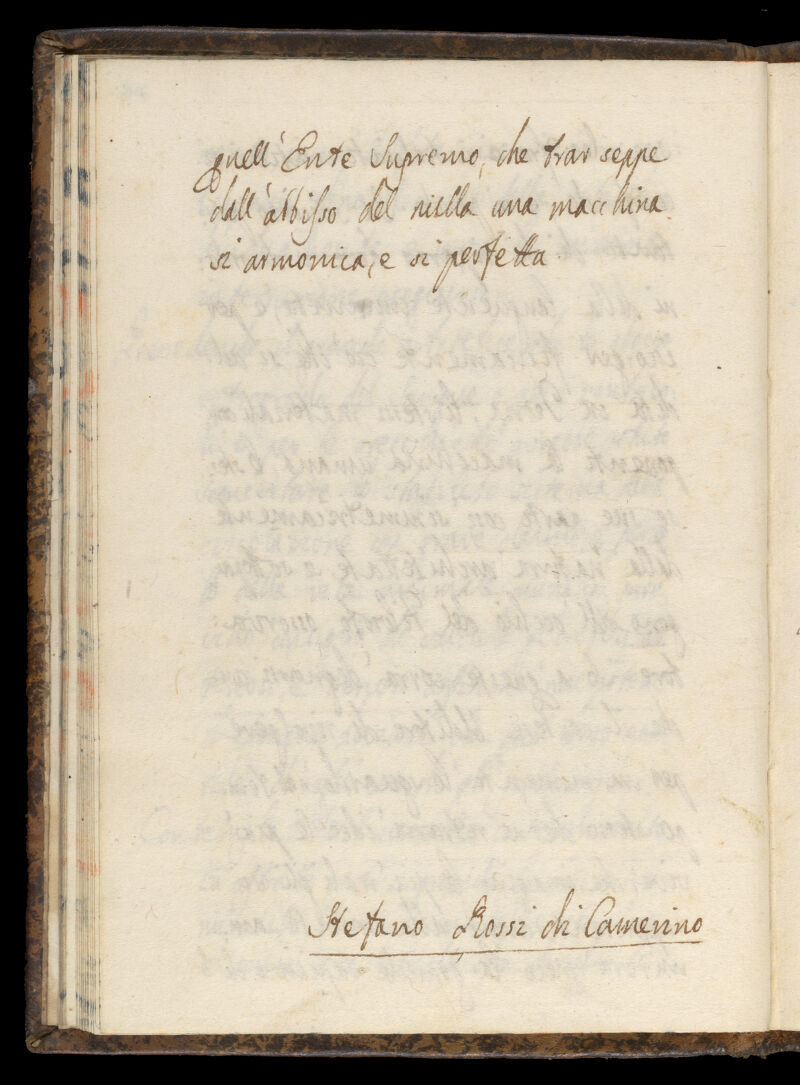 quell'Ente Supremo, che trar seppe
dall'abbisso del nulla una macchina
si armonica, e si perfetta.
Stefano Rossi di Camerino